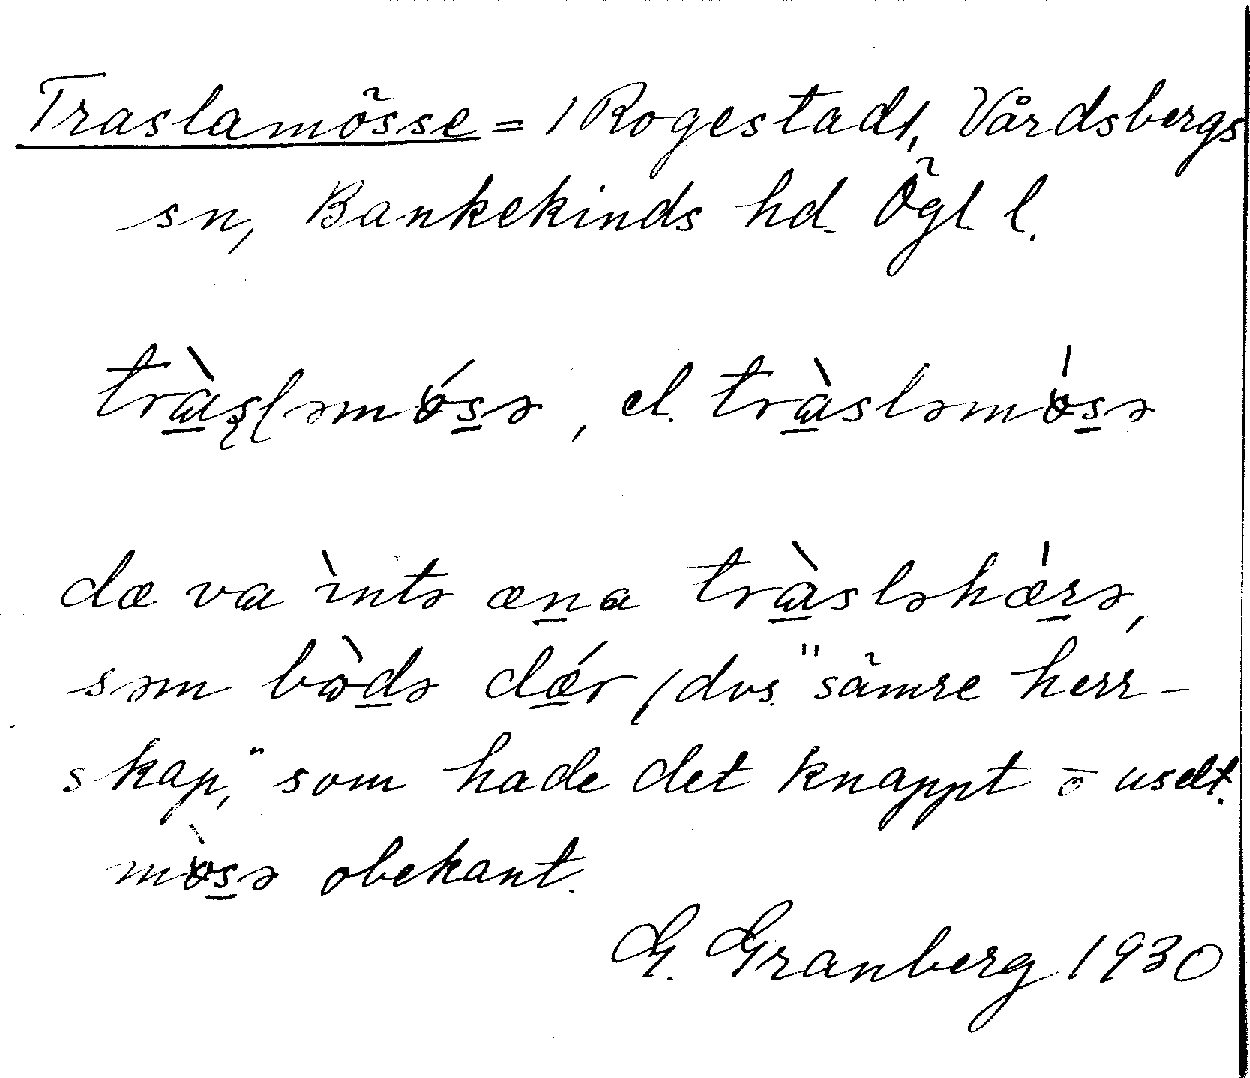 Traslamösse = /Rogestad/, Vårdsbergs
sn, Bankekinds hd. Ögl l.
trɑ̀sləmǿsə, el. trɑ̀sləmø̍sə
dæ va ìntə æna trɑ̀sləhæ̍rə,
səm bòdə dǽr /dvs. "sämre herr-
skap," som hade det knappt o uselt.
mø̀sə obekant.
G. Granberg 1930